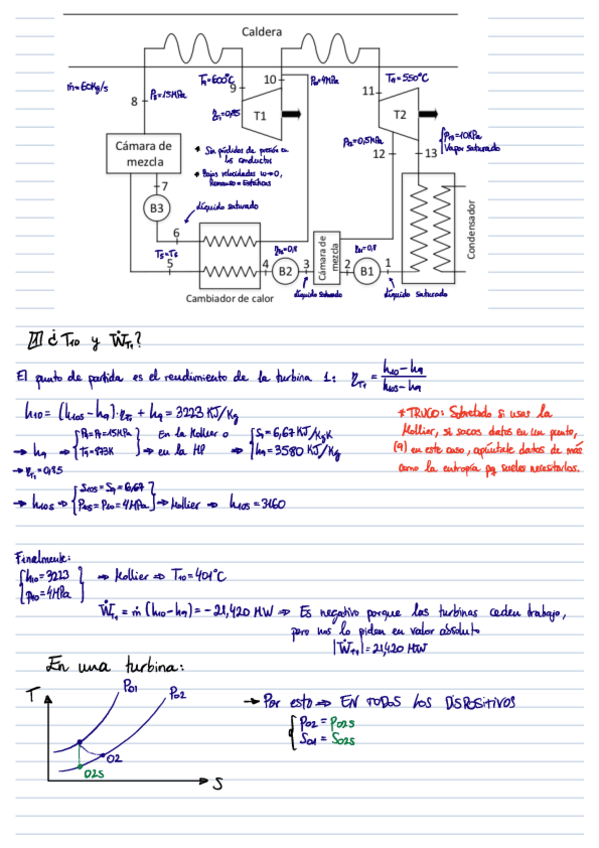 Caldera
ṁ=60kg/s
P8=15MPa
T9=600°C
10
P10=4MPa
T11=550°C
8
9
11
ηT1=0,85
T1
T2
P12=0,5MPa
P13=10KPa
Vapor saturado
12
13
Cámara de mezcla
* Sin pérdidas de presión en los conductos
* Bajas velocidades u→0, Remanso=Estáticas
7
B3
líquido saturado
6
T5=T6
5
Cambiador de calor
4
ηB2=0,8
B2
3
Cámara de mezcla
2
ηB1=0,8
B1
1
líquido saturado
líquido saturado
Condensador
1 ¿T10 y ẆT1?
El punto de partida es el rendimiento de la turbina 1: ηT1 = h10-h9 / h10s-h9
h10 = (h10s-h9)·ηT1 + h9 = 3223 KJ/Kg
→ h9 ⇒ {P9=P8=15MPa T9=873K} → En la Mollier o en la HP ⇒ {S9=6,67 KJ/KgK h9=3580 KJ/Kg
→ ηT1=0,85
→ h10s ⇒ {S10s=S9=6,67 P10s=P10=4MPa} → Mollier ⇒ h10s=3160
* TRUCO: Sobretodo si usas la
Mollier, si sacas datos en un punto,
(9) en este caso, apúntate datos de más
como la entropía pq sueles necesitarlos.
Finalmente:
{h10=3223 P10=4MPa} ⇒ Mollier ⇒ T10=401°C
ẆT1 = ṁ (h10-h9) = -21,420 MW ⇒ Es negativo porque las turbinas ceden trabajo,
pero nos lo piden en valor absoluto
|ẆT1|=21,420 MW
En una turbina:
T
P01
P02
02
02s
S
→ Por esto ⇒ EN TODOS LOS DISPOSITIVOS
{P02 = P02s
S01 = S02s